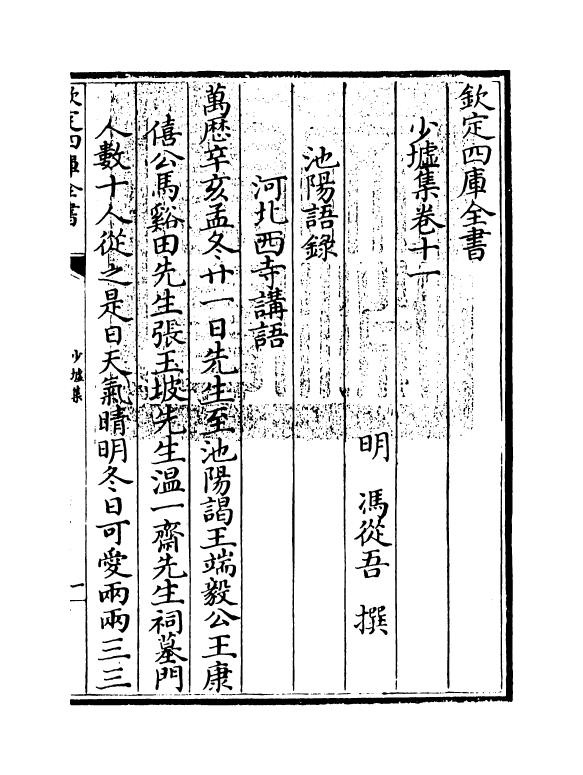 欽定四庫全書
少墟集卷十一
明　馮從吾　撰
池陽語錄
河北西寺講語
萬歴辛亥孟冬廿一日先生至池陽謁王端毅公王康
僖公馬谿田先生張玉坡先生温一齋先生祠墓門
人數十人從之是日天氣晴明冬日可愛兩兩三三
欽定四庫全書
少墟集
一